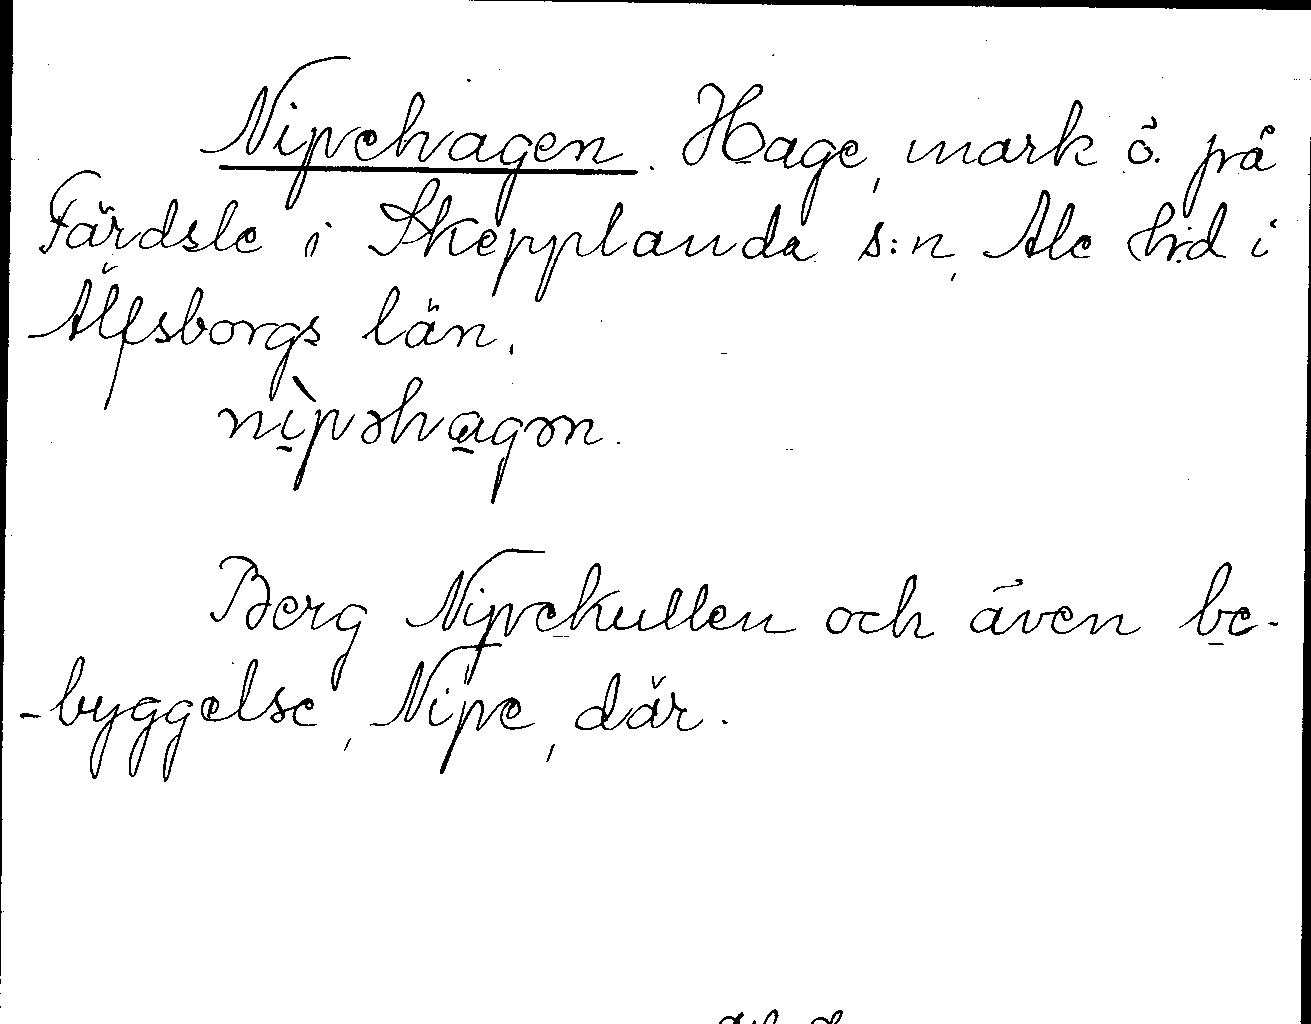 Nipehagen. Hage, mark ö. på
Färdsle i Skepplanda s:n, Ale hd i
Älfsborgs län.
nìpəhagən.
Berg Nipekullen och även be-
-byggelse, Nipe, där.